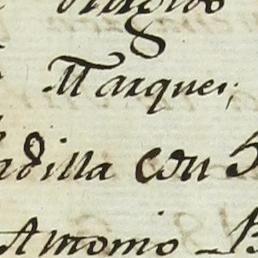 Marques;
adilla con S
Antonio - B